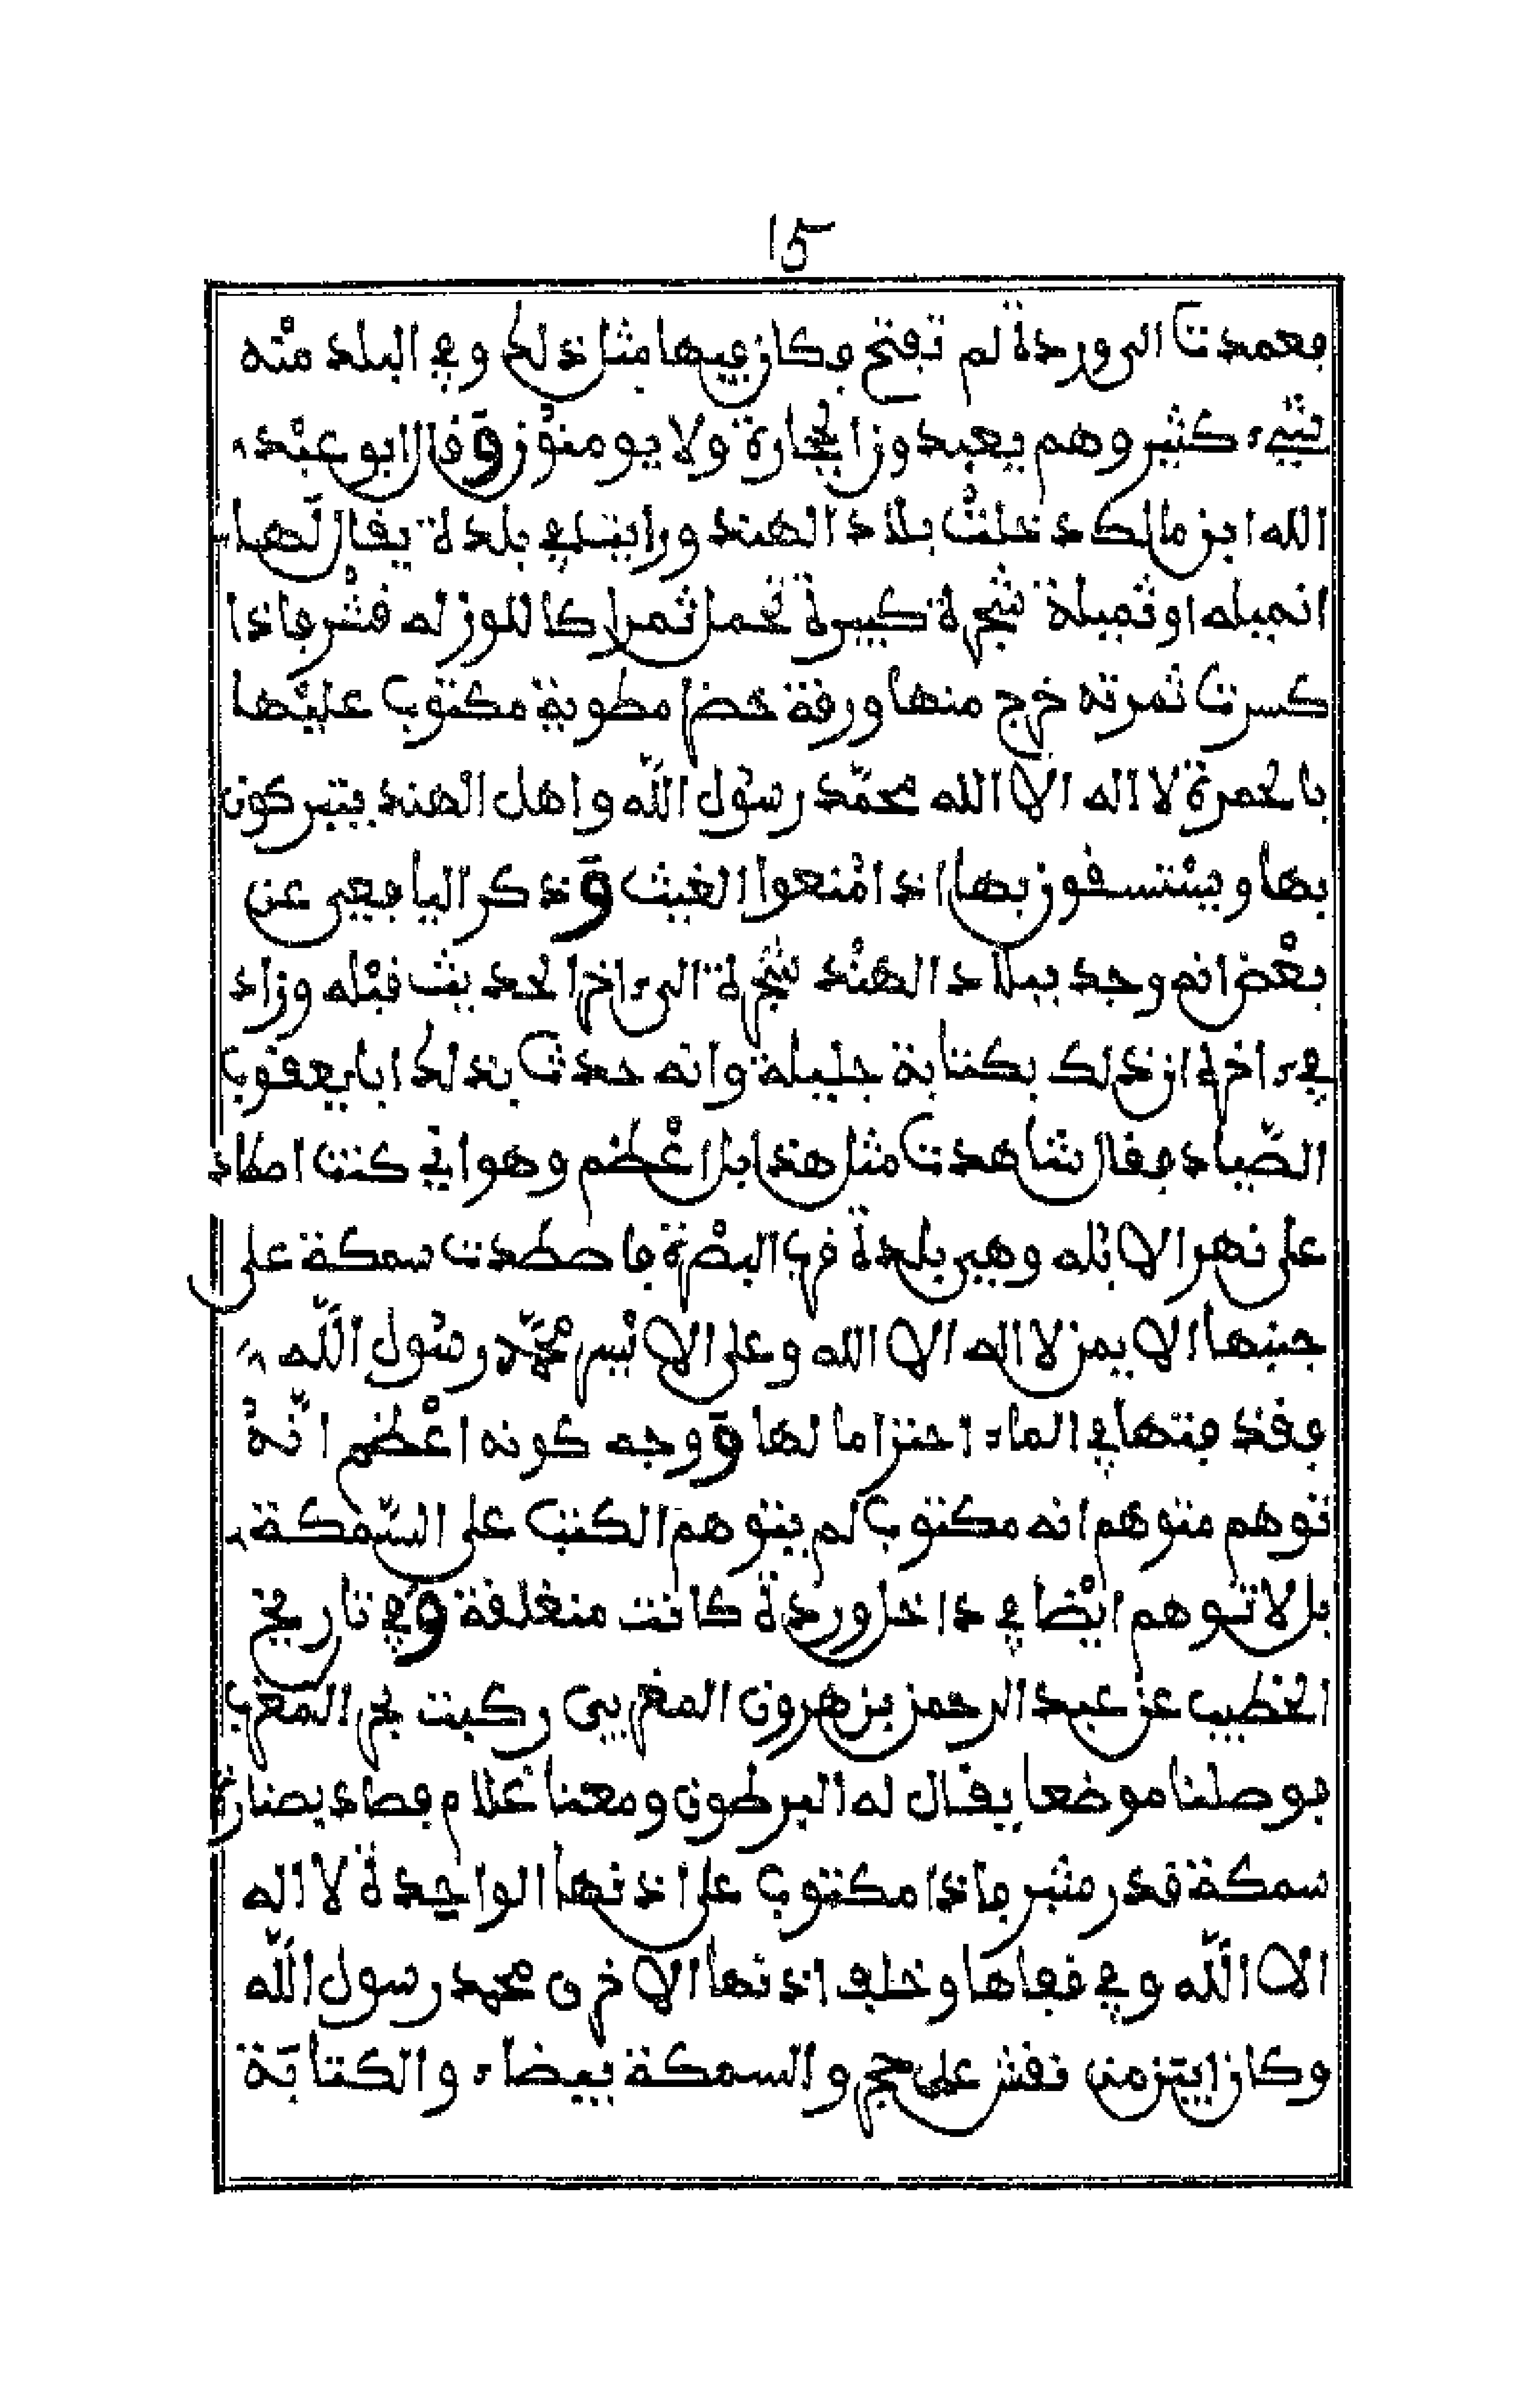 15
فعمدت الى وردة لم تفتح فكان فيها مثل ذلك وفي البلد منه
شيء كثير وهم يعبدون الحجارة ولا يومنون وقال ابو عبد
الله ابن مالك دخلت بلاد الهند ورايت في بلدة يقال لها
انميله او ثميلة شجرة كبيرة تحمل ثمرا كاللوز له قشر فاذا
كسرت ثمرته خرج منها ورقة خضرا مطوية مكتوب عليها
بالحمرة لا اله الا الله محمّد رسول اللّه واهل الهند يتبركون
بها ويستسقون بها اذا منعوا الغيث وذكر اليافعي عن
بعض انه وجد ببلاد الهند شجرة الى ءاخر الحديث قبله وزاد
في ءاخره ان ذلك بكتابة جليلة وانه حدث بذلك ابا يعقوب
الصّياد فقال شاهدت مثل هذا بل اعظم وهو اني كنت اصطاد
على نهر الابله وهي بلدة قرب البصرة فاصطدت سمكة على
جنبها الايمن لا اله الا الله وعلى الايسر محمّد رسول اللّه
فقذفتها في الماء احتراما لها ووجه كونه اعظم انّه
توهم متوهم انه مكتوب لم يتوهم الكتب على السّمكة
بل لا توهم ايضا في داخل وردة كانت منغلقة وفي تاريخ
الخطيب عن عبد الرحمن بن هرون المغربي ركبت بحر المغرب
فوصلنا موضعا يقال له البرطون ومعنا غلام فصاد بصنارة
سمكة قدر شبر فاذا مكتوب على اذنها الواحدة لا اله
الا اللّه وفي قفاها وخلف اذنها الاخرى محمد رسول اللّه
وكان ابين من نقش على حجر والسمكة بيضاء والكتابة